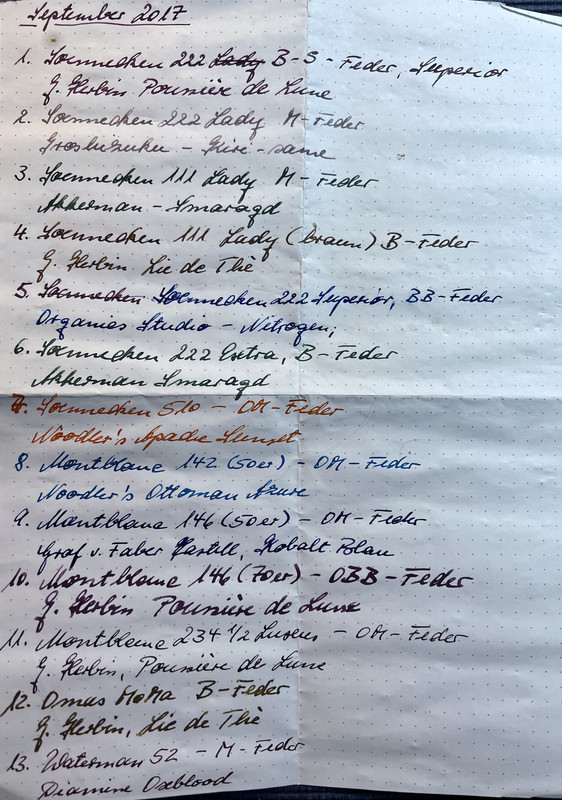 September 2017
1. Soennecken 222 Lady B-S-Feder, Superior
J. Herbin Poussière de Lune
2. Soennecken 222 Lady M-Feder
Iroshizuku - Kiri-same
3. Soennecken 111 Lady M-Feder
Akkerman - Smaragd
4. Soennecken 111 Lady (braun) B-Feder
J. Herbin Lie de Thé
5. Soennecken Soennecken 222 Superior, BB-Feder
Organics Studio - Nitrogen;
6. Soennecken 222 Extra, B-Feder
Akkerman Smaragd
7. Soennecken 510 - OM-Feder
Noodler's Apache Sunset
8. Montblanc 142 (50er) - OM-Feder
Noodler's Ottoman Azure
9. Montblanc 146 (50er) - OM-Feder
Graf v. Faber Kastell, Kobalt Blau
10. Montblanc 146 (70er) - OBB-Feder
J. Herbin Poussière de Lune
11. Montblanc 234 1/2 Luxus - OM-Feder
J. Herbin, Poussière de Lune
12. Omas MoMA B-Feder
J. Herbin, Lie de Thé
13. Waterman 52 - M-Feder
Diamine Oxblood